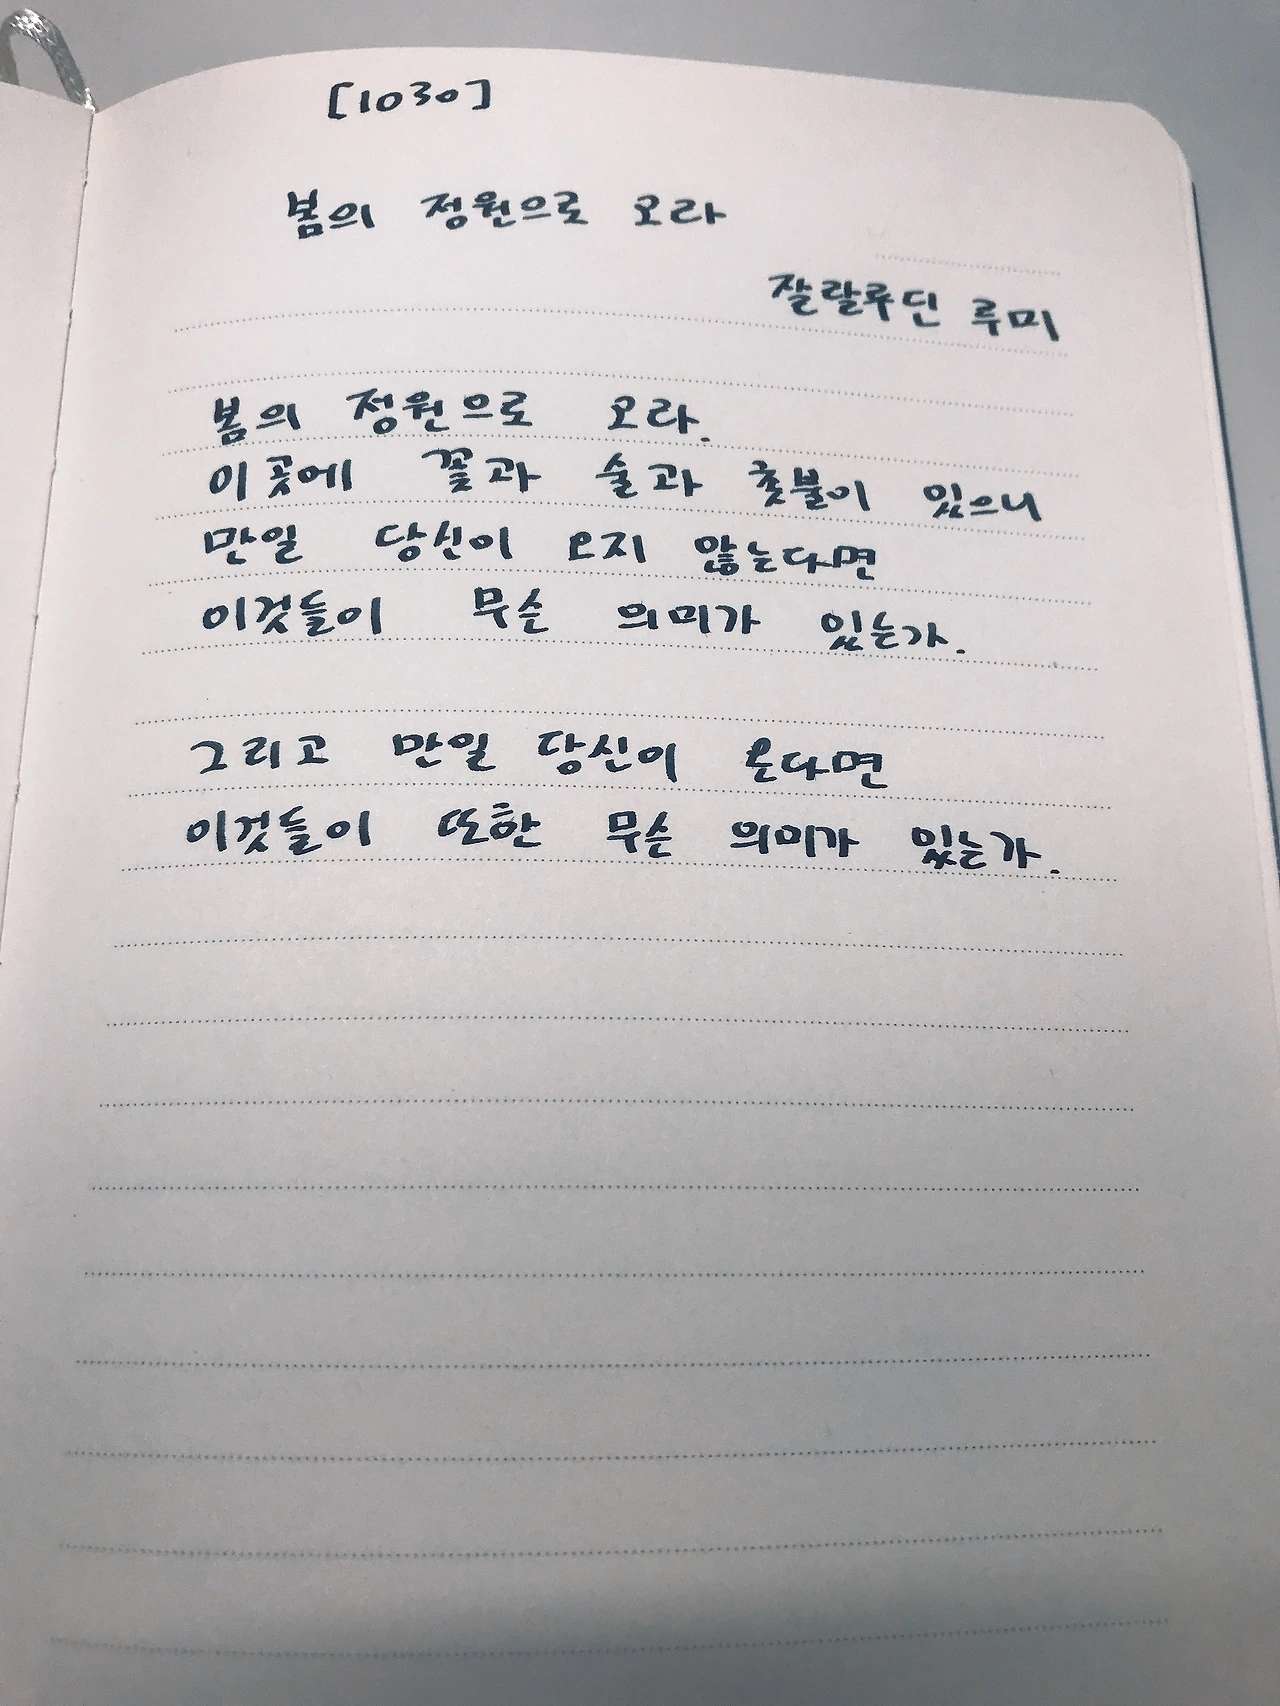 [1030]
봄의 정원으로 오라
잘랄루딘 루미
봄의 정원으로 오라.
이곳에 꽃과 술과 촛불이 있으니
만일 당신이 오지 않는다면
이것들이 무슨 의미가 있는가.
그리고 만일 당신이 온다면
이것들이 또한 무슨 의미가 있는가.